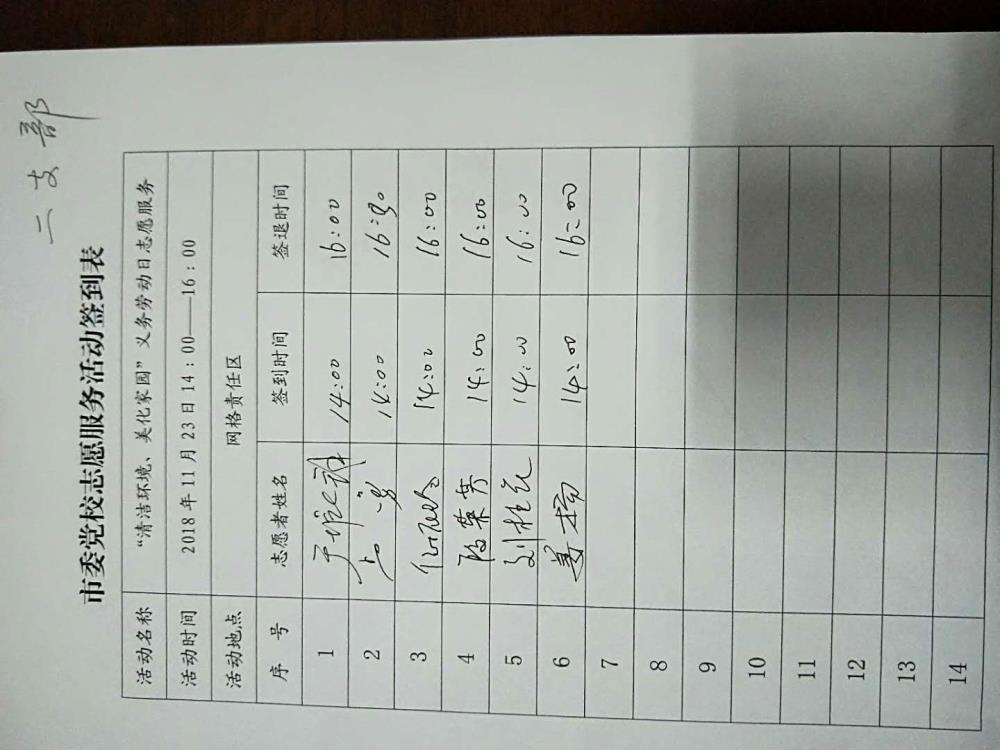 二支部
市委党校志愿服务活动签到表
活动名称 “清洁环境、美化家园”义务劳动日志愿服务
活动时间 2018年11月23日14:00——16:00
活动地点 网格责任区
序 号 志愿者姓名 签到时间 签退时间
1 14:00 16:00
2 14:00 16:30
3 14:00 16:00
4 陈荣芳 14:00 16:00
5 刘桂花 14:00 16:00
6 姜杨 14:00 16:00
7
8
9
10
11
12
13
14